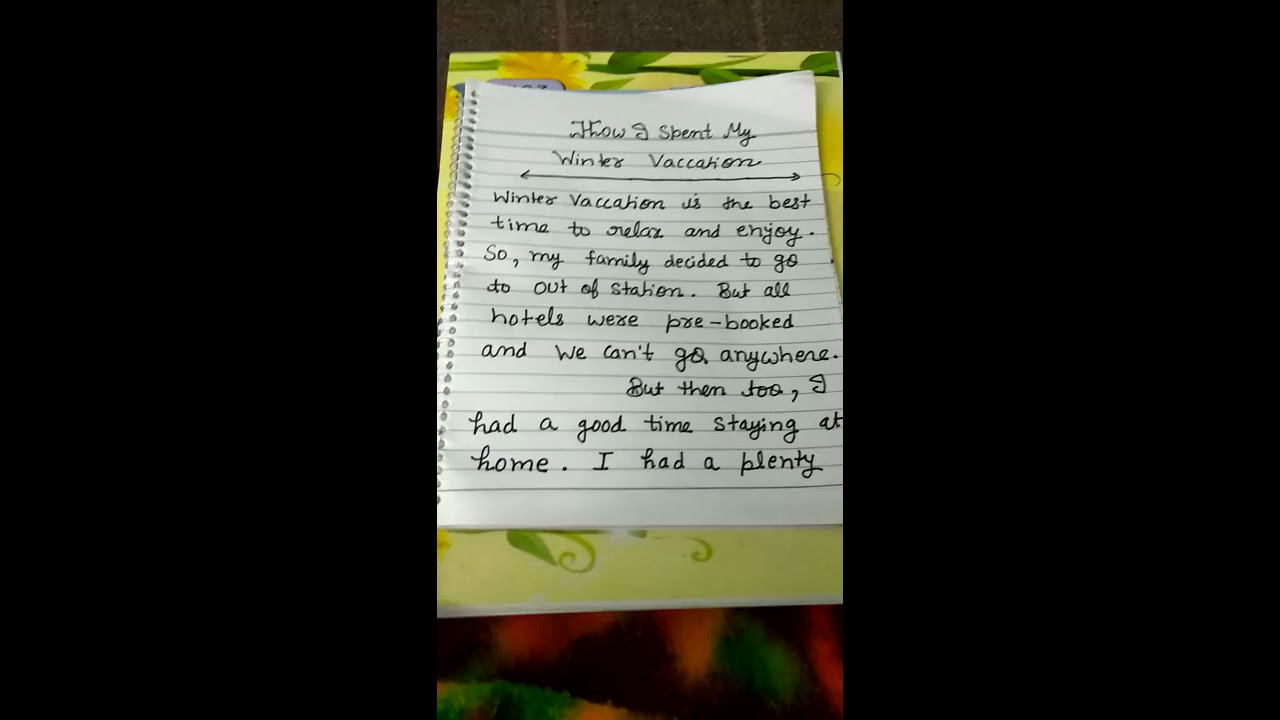 How I Spent My
Winter Vaccation
Winter Vaccation is the best
time to relax and enjoy.
So, my family decided to go
to out of station. But all
hotels were pre-booked
and we can't go anywhere.
But then too, I
had a good time staying at
home. I had a plenty